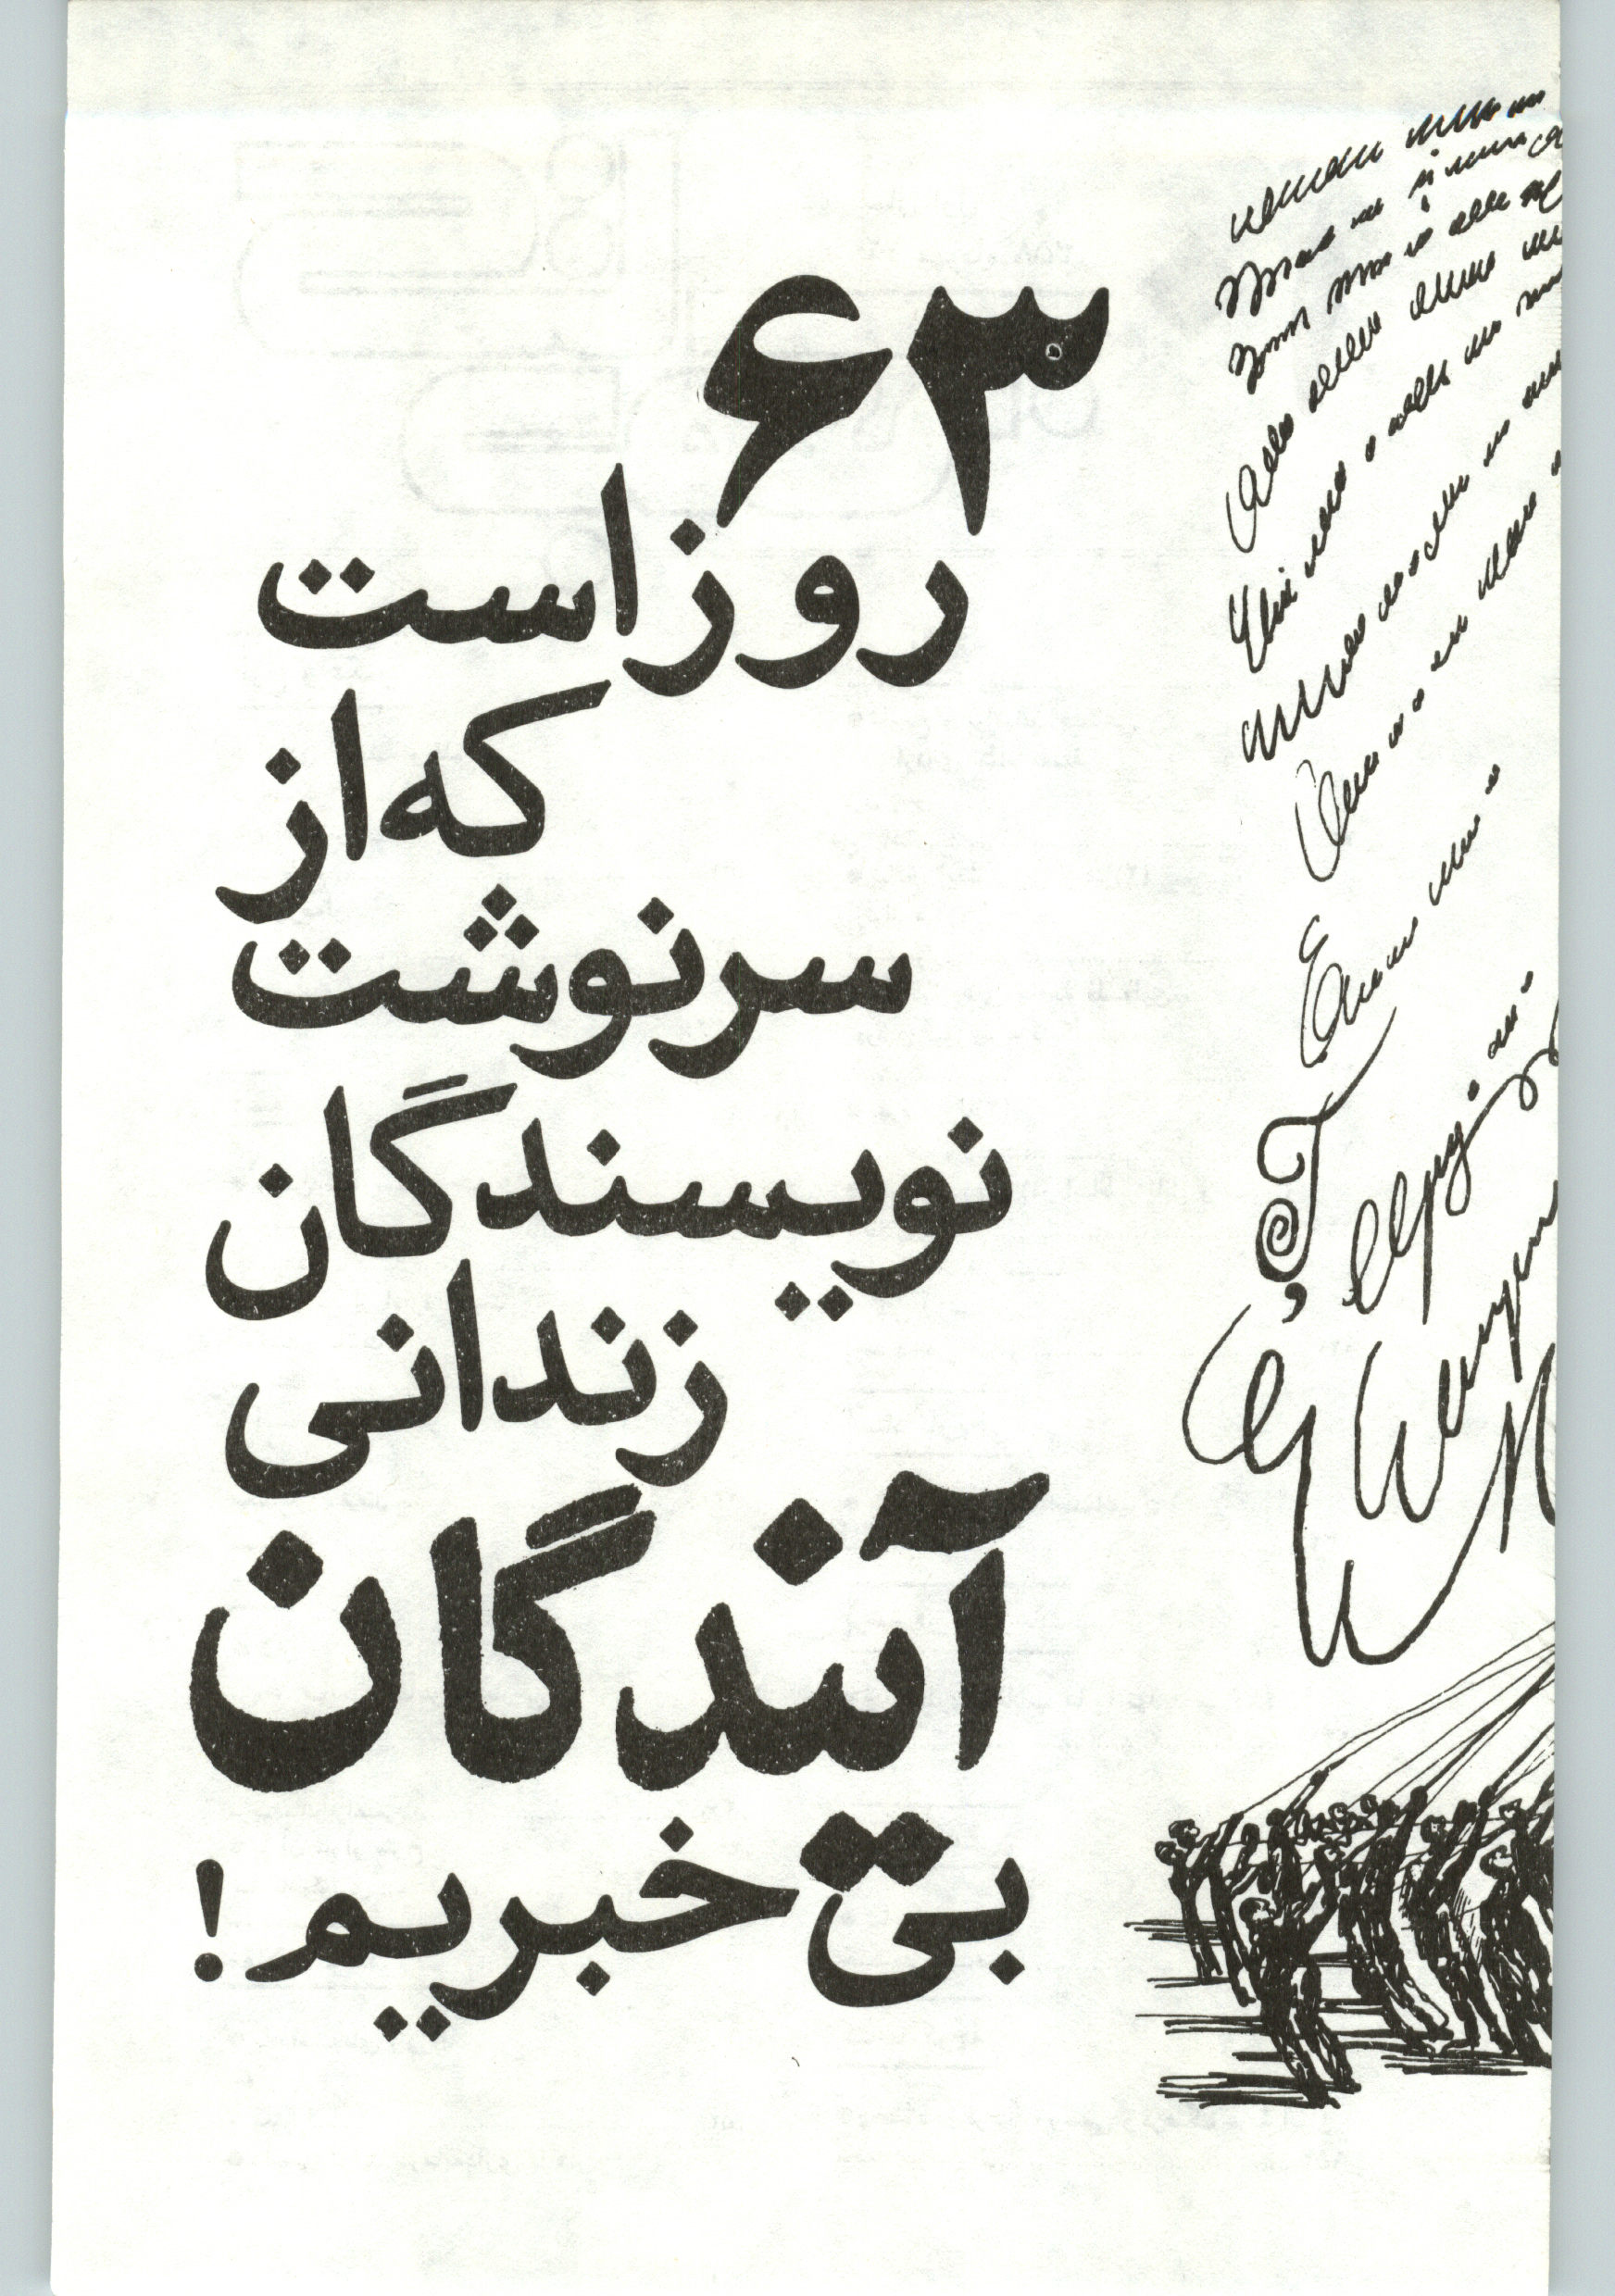 ۶۳
روز است
که از
سرنوشت
نویسندگان
زندانی
آیندگان
بی خبریم !